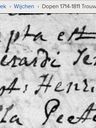 ek › Wijchen › Dopen 1714-1811 Trouw
pta est
erarde
Henri
lla Peet